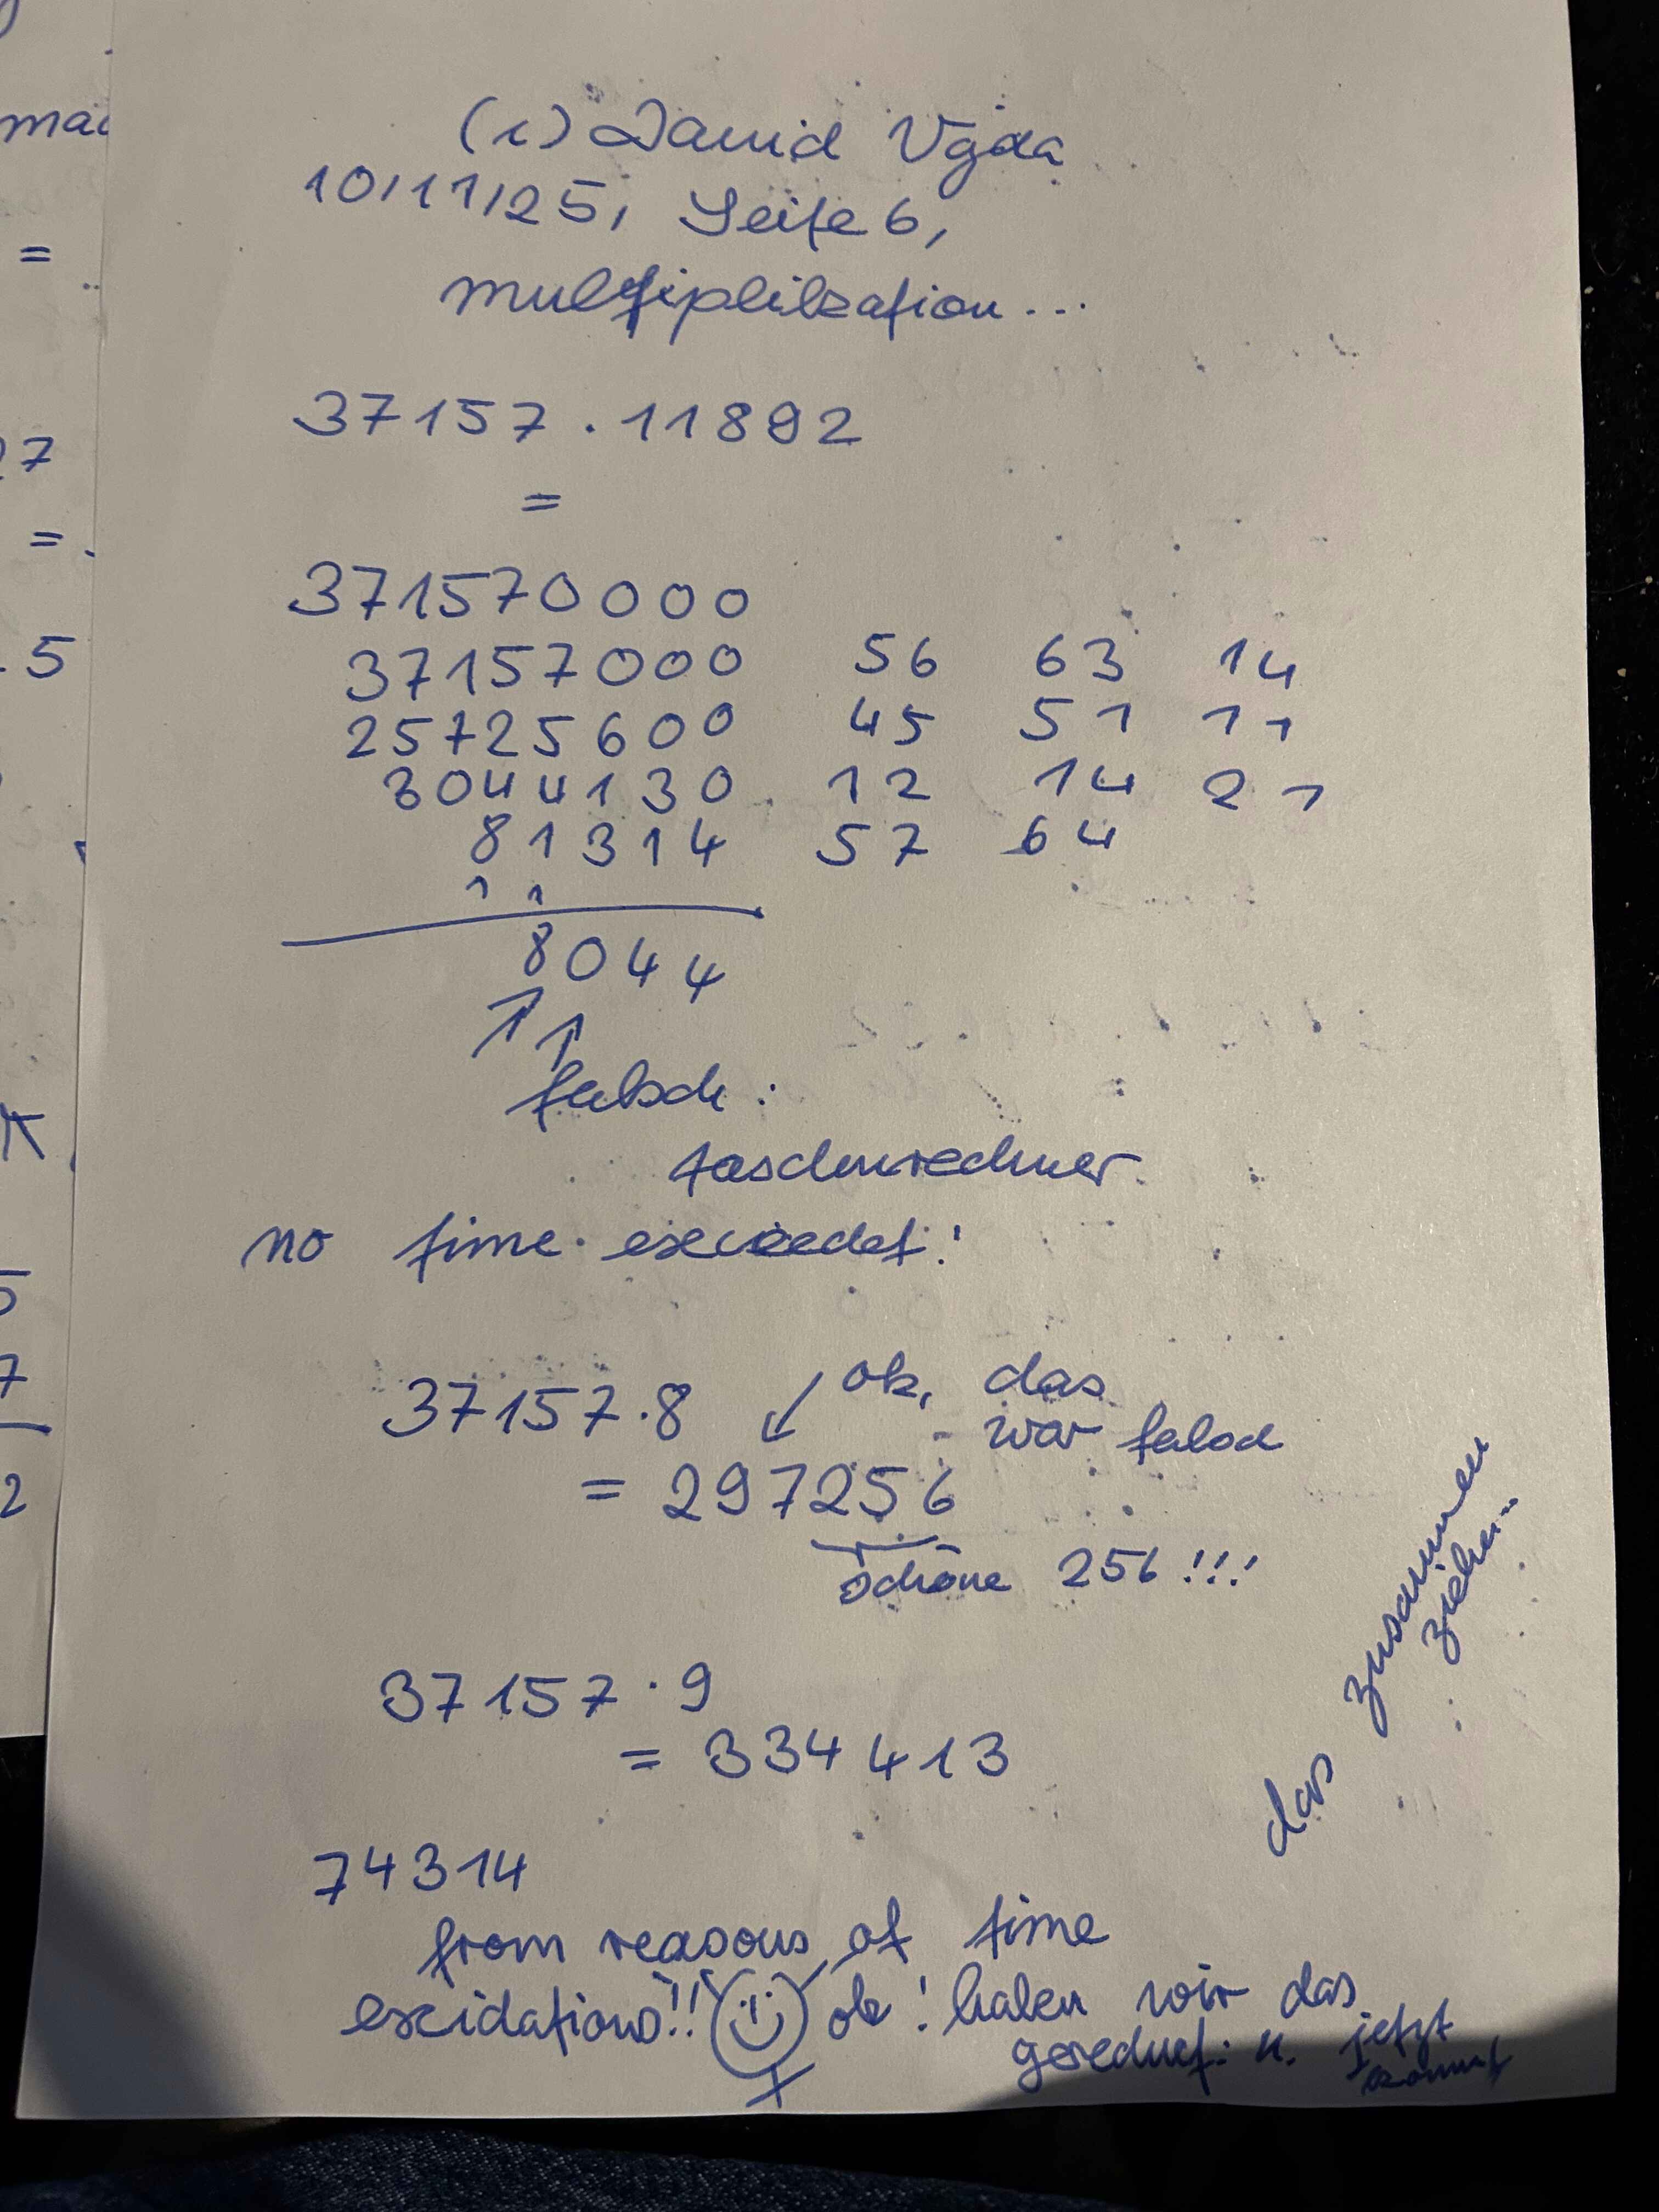 mac
=
27
= .
. 5
5
7
2
(c) David Vajda
10/11/25, Seite 6,
multiplikation...
37157 . 11892
=
371570000
37157000 56 63 14
25725600 45 51 11
3044130 12 14 21
81314 57 64
1 1
8044
falsch:
taschenrechner
no time
37157.8 ok, das
war falsch
= 297256
schöne 256!!!
37157.9
= 334413
das zusammen
ziehen...
74314
from reasons of time
exidations!! ok! haben wir das
gerechnet: u. jetzt
kommt